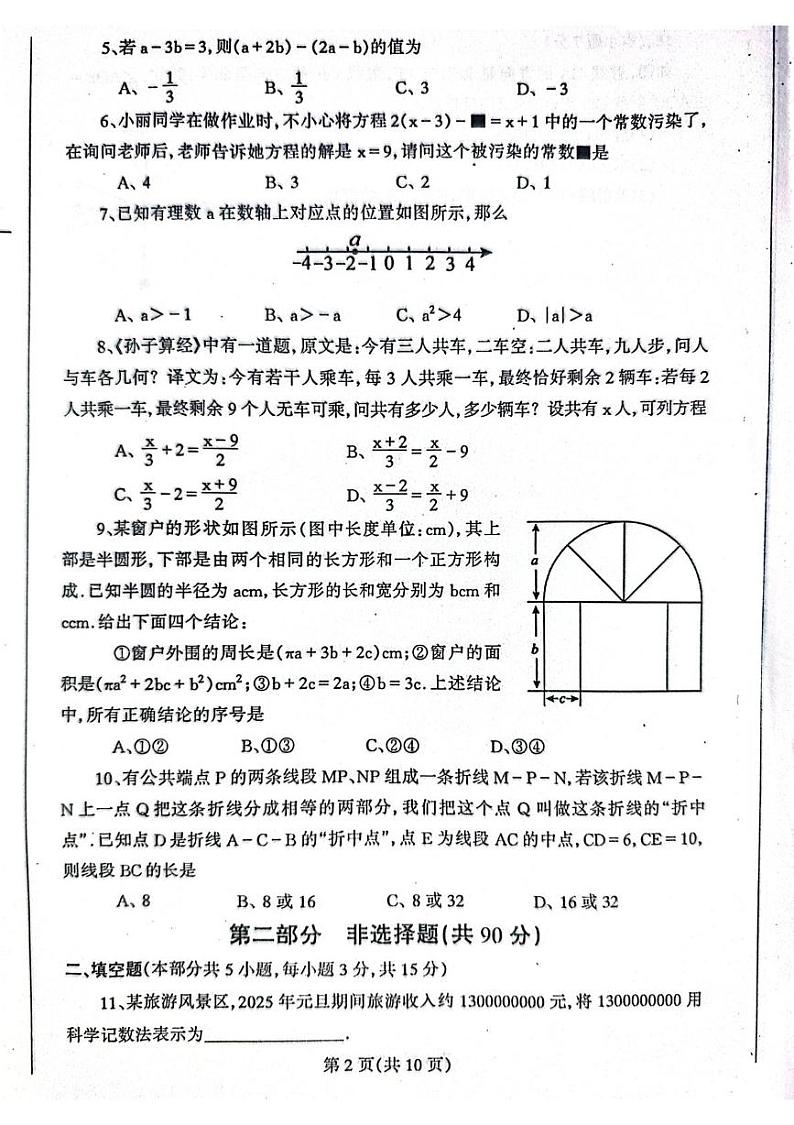 5、若a-3b=3,则(a+2b)-(2a-b)的值为
A、-1/3 B、1/3 C、3 D、-3
6、小丽同学在做作业时,不小心将方程2(x-3)-■=x+1中的一个常数污染了,
在询问老师后,老师告诉她方程的解是x=9,请问这个被污染的常数■是
A、4 B、3 C、2 D、1
7、已知有理数a在数轴上对应点的位置如图所示,那么
a
-4 -3 -2 -1 0 1 2 3 4
A、a>-1 B、a>-a C、a²>4 D、|a|>a
8、《孙子算经》中有一道题,原文是:今有三人共车,二车空:二人共车,九人步,问人
与车各几何?译文为:今有若干人乘车,每3人共乘一车,最终恰好剩余2辆车:若每2
人共乘一车,最终剩余9个人无车可乘,问共有多少人,多少辆车?设共有x人,可列方程
A、x/3+2=(x-9)/2 B、(x+2)/3=x/2-9
C、x/3-2=(x+9)/2 D、(x-2)/3=x/2+9
9、某窗户的形状如图所示(图中长度单位:cm),其上
部是半圆形,下部是由两个相同的长方形和一个正方形构
成.已知半圆的半径为acm,长方形的长和宽分别为bcm和
ccm.给出下面四个结论:
①窗户外围的周长是(πa+3b+2c)cm;②窗户的面
积是(πa²+2bc+b²)cm²;③b+2c=2a;④b=3c.上述结论
中,所有正确结论的序号是
a
b
c
A、①② B、①③ C、②④ D、③④
10、有公共端点P的两条线段MP、NP组成一条折线M-P-N,若该折线M-P-
N上一点Q把这条折线分成相等的两部分,我们把这个点Q叫做这条折线的“折中
点”.已知点D是折线A-C-B的“折中点”,点E为线段AC的中点,CD=6,CE=10,
则线段BC的长是
A、8 B、8或16 C、8或32 D、16或32
第二部分 非选择题(共90分)
二、填空题(本部分共5小题,每小题3分,共15分)
11、某旅游风景区,2025年元旦期间旅游收入约1300000000元,将1300000000用
科学记数法表示为________________.
第2页(共10页)